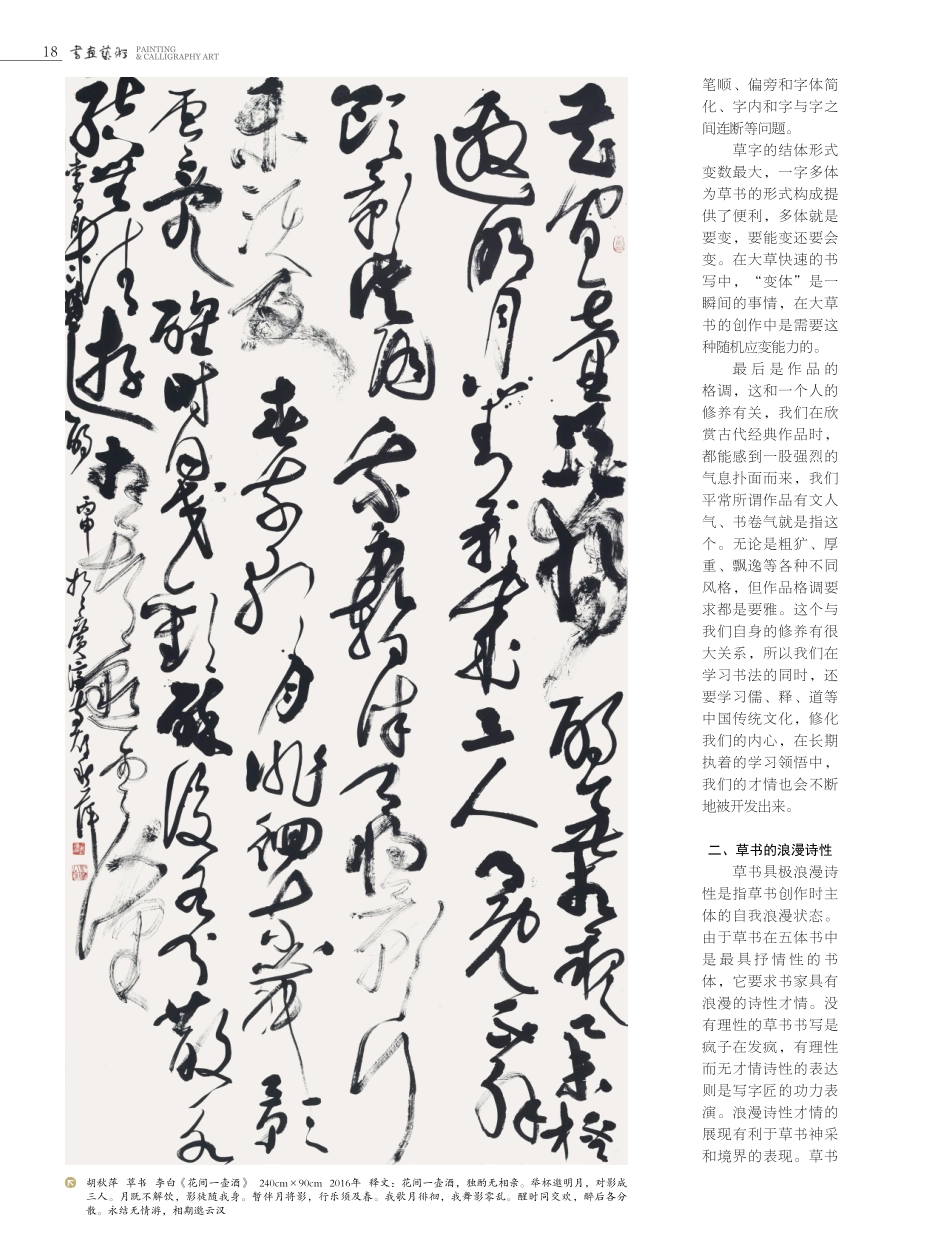 18 书画艺术 PAINTING
& CALLIGRAPHY ART
花間一壺酒獨酌無相親舉杯
邀明月對影成三人月既不解
飲影徒隨我身暫伴月將影行
樂須及春我歌月徘徊我舞影
零亂醒時同交歡醉後各分散永
結無情遊相期邈雲漢
胡秋萍 草书 李白《花间一壶酒》 240cm×90cm 2016年 释文：花间一壶酒，独酌无相亲。举杯邀明月，对影成
三人。月既不解饮，影徒随我身。暂伴月将影，行乐须及春。我歌月徘徊，我舞影零乱。醒时同交欢，醉后各分
散。永结无情游，相期邈云汉
笔顺、偏旁和字体简
化、字内和字与字之
间连断等问题。
草字的结体形式
变数最大，一字多体
为草书的形式构成提
供了便利，多体就是
要变，要能变还要会
变。在大草快速的书
写中，“变体”是一
瞬间的事情，在大草
书的创作中是需要这
种随机应变能力的。
最后是作品的
格调，这和一个人的
修养有关，我们在欣
赏古代经典作品时，
都能感到一股强烈的
气息扑面而来，我们
平常所谓作品有文人
气、书卷气就是指这
个。无论是粗犷、厚
重、飘逸等各种不同
风格，但作品格调要
求都是要雅。这个与
我们自身的修养有很
大关系，所以我们在
学习书法的同时，还
要学习儒、释、道等
中国传统文化，修化
我们的内心，在长期
执着的学习领悟中，
我们的才情也会不断
地被开发出来。
二、草书的浪漫诗性
草书具极浪漫诗
性是指草书创作时主
体的自我浪漫状态。
由于草书在五体书中
是最具抒情性的书
体，它要求书家具有
浪漫的诗性才情。没
有理性的草书书写是
疯子在发疯，有理性
而无才情诗性的表达
则是写字匠的功力表
演。浪漫诗性才情的
展现有利于草书神采
和境界的表现。草书